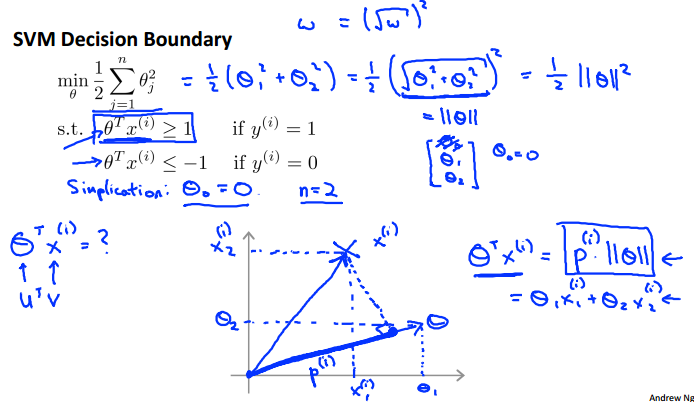 ω = (√ω)²
SVM Decision Boundary
min_θ 1/2 Σ_{j=1}^{n} θ_j² = 1/2 (θ₁² + θ₂²) = 1/2 (√(θ₁² + θ₂²))² = 1/2 ||θ||²
= ||θ||
s.t. θᵀx⁽ⁱ⁾ ≥ 1 if y⁽ⁱ⁾ = 1
→ θᵀx⁽ⁱ⁾ ≤ −1 if y⁽ⁱ⁾ = 0
[θ₁ θ₂] θ₀=0
Simplication: θ₀ = 0. n=2
θᵀx⁽ⁱ⁾ = ?
↑ ↑
uᵀv
x₂⁽ⁱ⁾ x⁽ⁱ⁾
θ₂ θ
p⁽ⁱ⁾ x₁⁽ⁱ⁾ θ₁
θᵀx⁽ⁱ⁾ = p⁽ⁱ⁾ · ||θ|| ←
= θ₁x₁⁽ⁱ⁾ + θ₂x₂⁽ⁱ⁾ ←
Andrew Ng